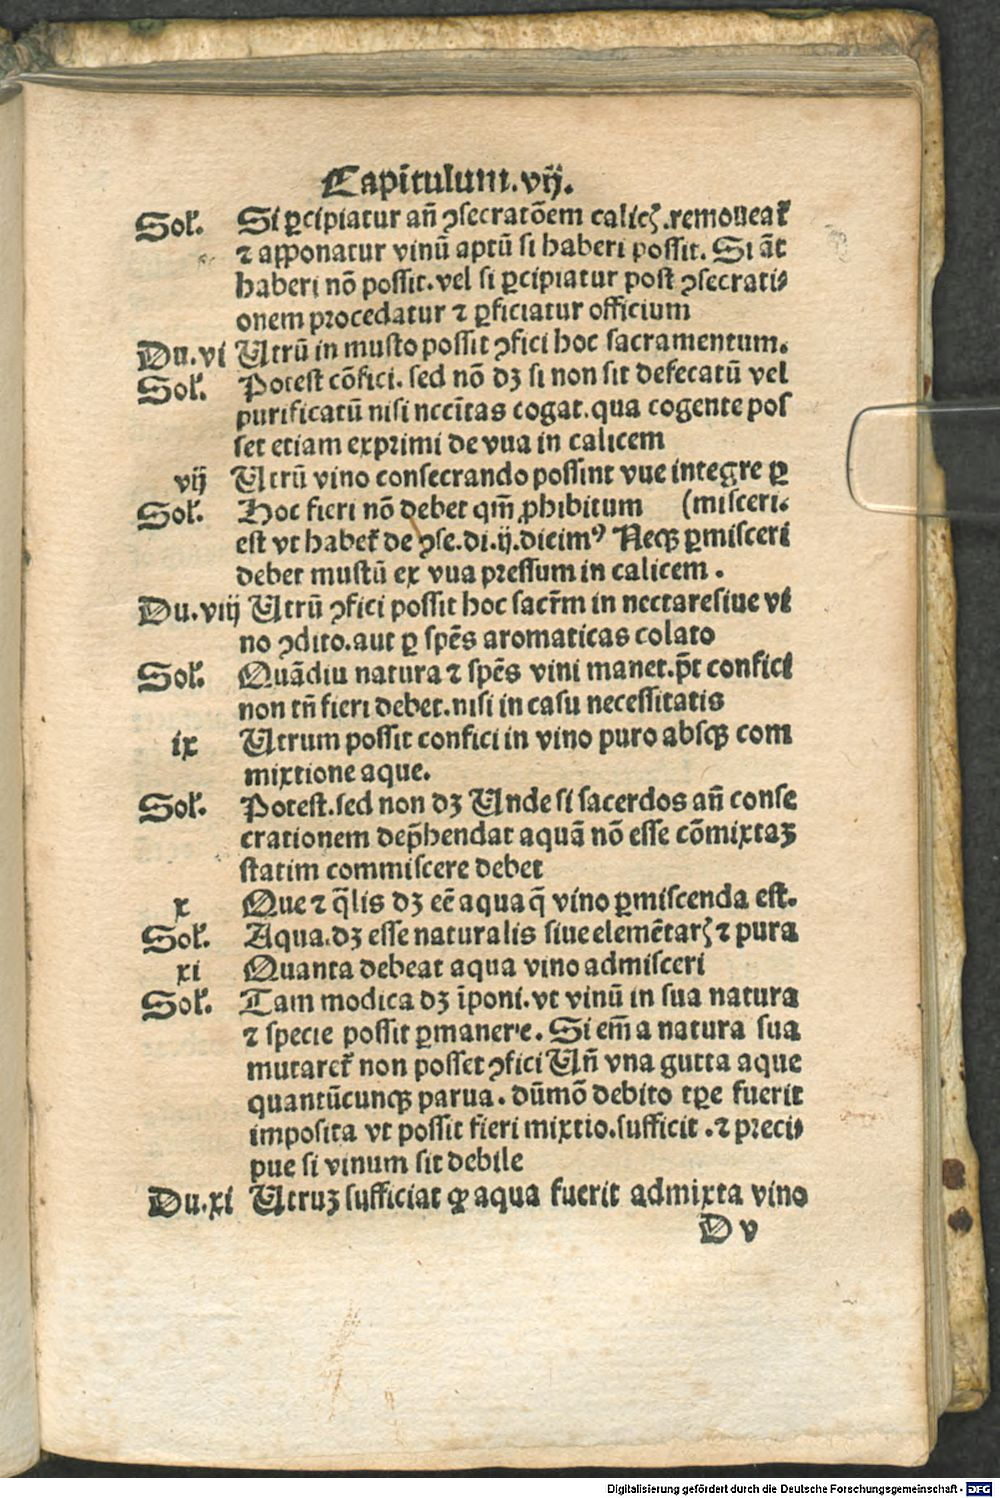 Capĩtulum.vij.
Solꝰ. Si ꝑcipiatur añ ꝯsecratõem calicꝭ.remoueat᷑
⁊ apponatur vinũ aptũ si haberi possit. Si aũt
haberi nõ possit.vel si ꝑcipiatur post ꝯsecrati⸗
onem procedatur ⁊ ꝑficiatur officium
Du.vi Utrũ in musto possit ꝯfici hoc sacramentum.
Solꝰ. Potest cõfici. sed nõ dꝫ si non sit defecatũ vel
purificatũ nisi nccĩtas cogat.qua cogente pos
set etiam exprimi de vua in calicem
vij Utrũ vino consecrando possint vue integre ꝑ
Solꝰ. Hoc fieri nõ debet qm̃ ꝓhibitum (misceri.
est vt habet᷑ de ꝯse.di.ij.dicimꝰ Necꝫ ꝑmisceri
debet mustũ ex vua pressum in calicem .
Du.viij Utrũ ꝯfici possit hoc sacr̃m in nectaresiue vi
no ꝯdito.aut ꝑ spẽs aromaticas colato
Solꝰ. Quãdiu natura ⁊ spẽs vini manet.p̃t confici
non tñ fieri debet.nisi in casu necessitatis
ix Utrum possit confici in vino puro absqꝫ com
mixtione aque.
Solꝰ. Potest.sed non dꝫ Unde si sacerdos añ conse
crationem dep̃hendat aquã nõ esse cõmixtaꝫ
statim commiscere debet
x Que ⁊ q̃lis dꝫ eẽ aqua q̃ vino ꝑmiscenda est.
Solꝰ. Aqua.dꝫ esse naturalis siue elemẽtarꝭ ⁊ pura
xi Quanta debeat aqua vino admisceri
Solꝰ. Tam modica dꝫ ĩponi.vt vinũ in sua natura
⁊ specie possit ꝑmanere. Si em̃ a natura sua
mutaret᷑ non posset ꝯfici Uñ vna gutta aque
quantũcunqꝫ parua. dũmõ debito tꝑe fuerit
imposita vt possit fieri mixtio.sufficit .⁊ preci⸗
pue si vinum sit debile
Du.xi Utruꝫ sufficiat ꝙ aqua fuerit admixta vino
D v
Digitalisierung gefördert durch die Deutsche Forschungsgemeinschaft - DFG